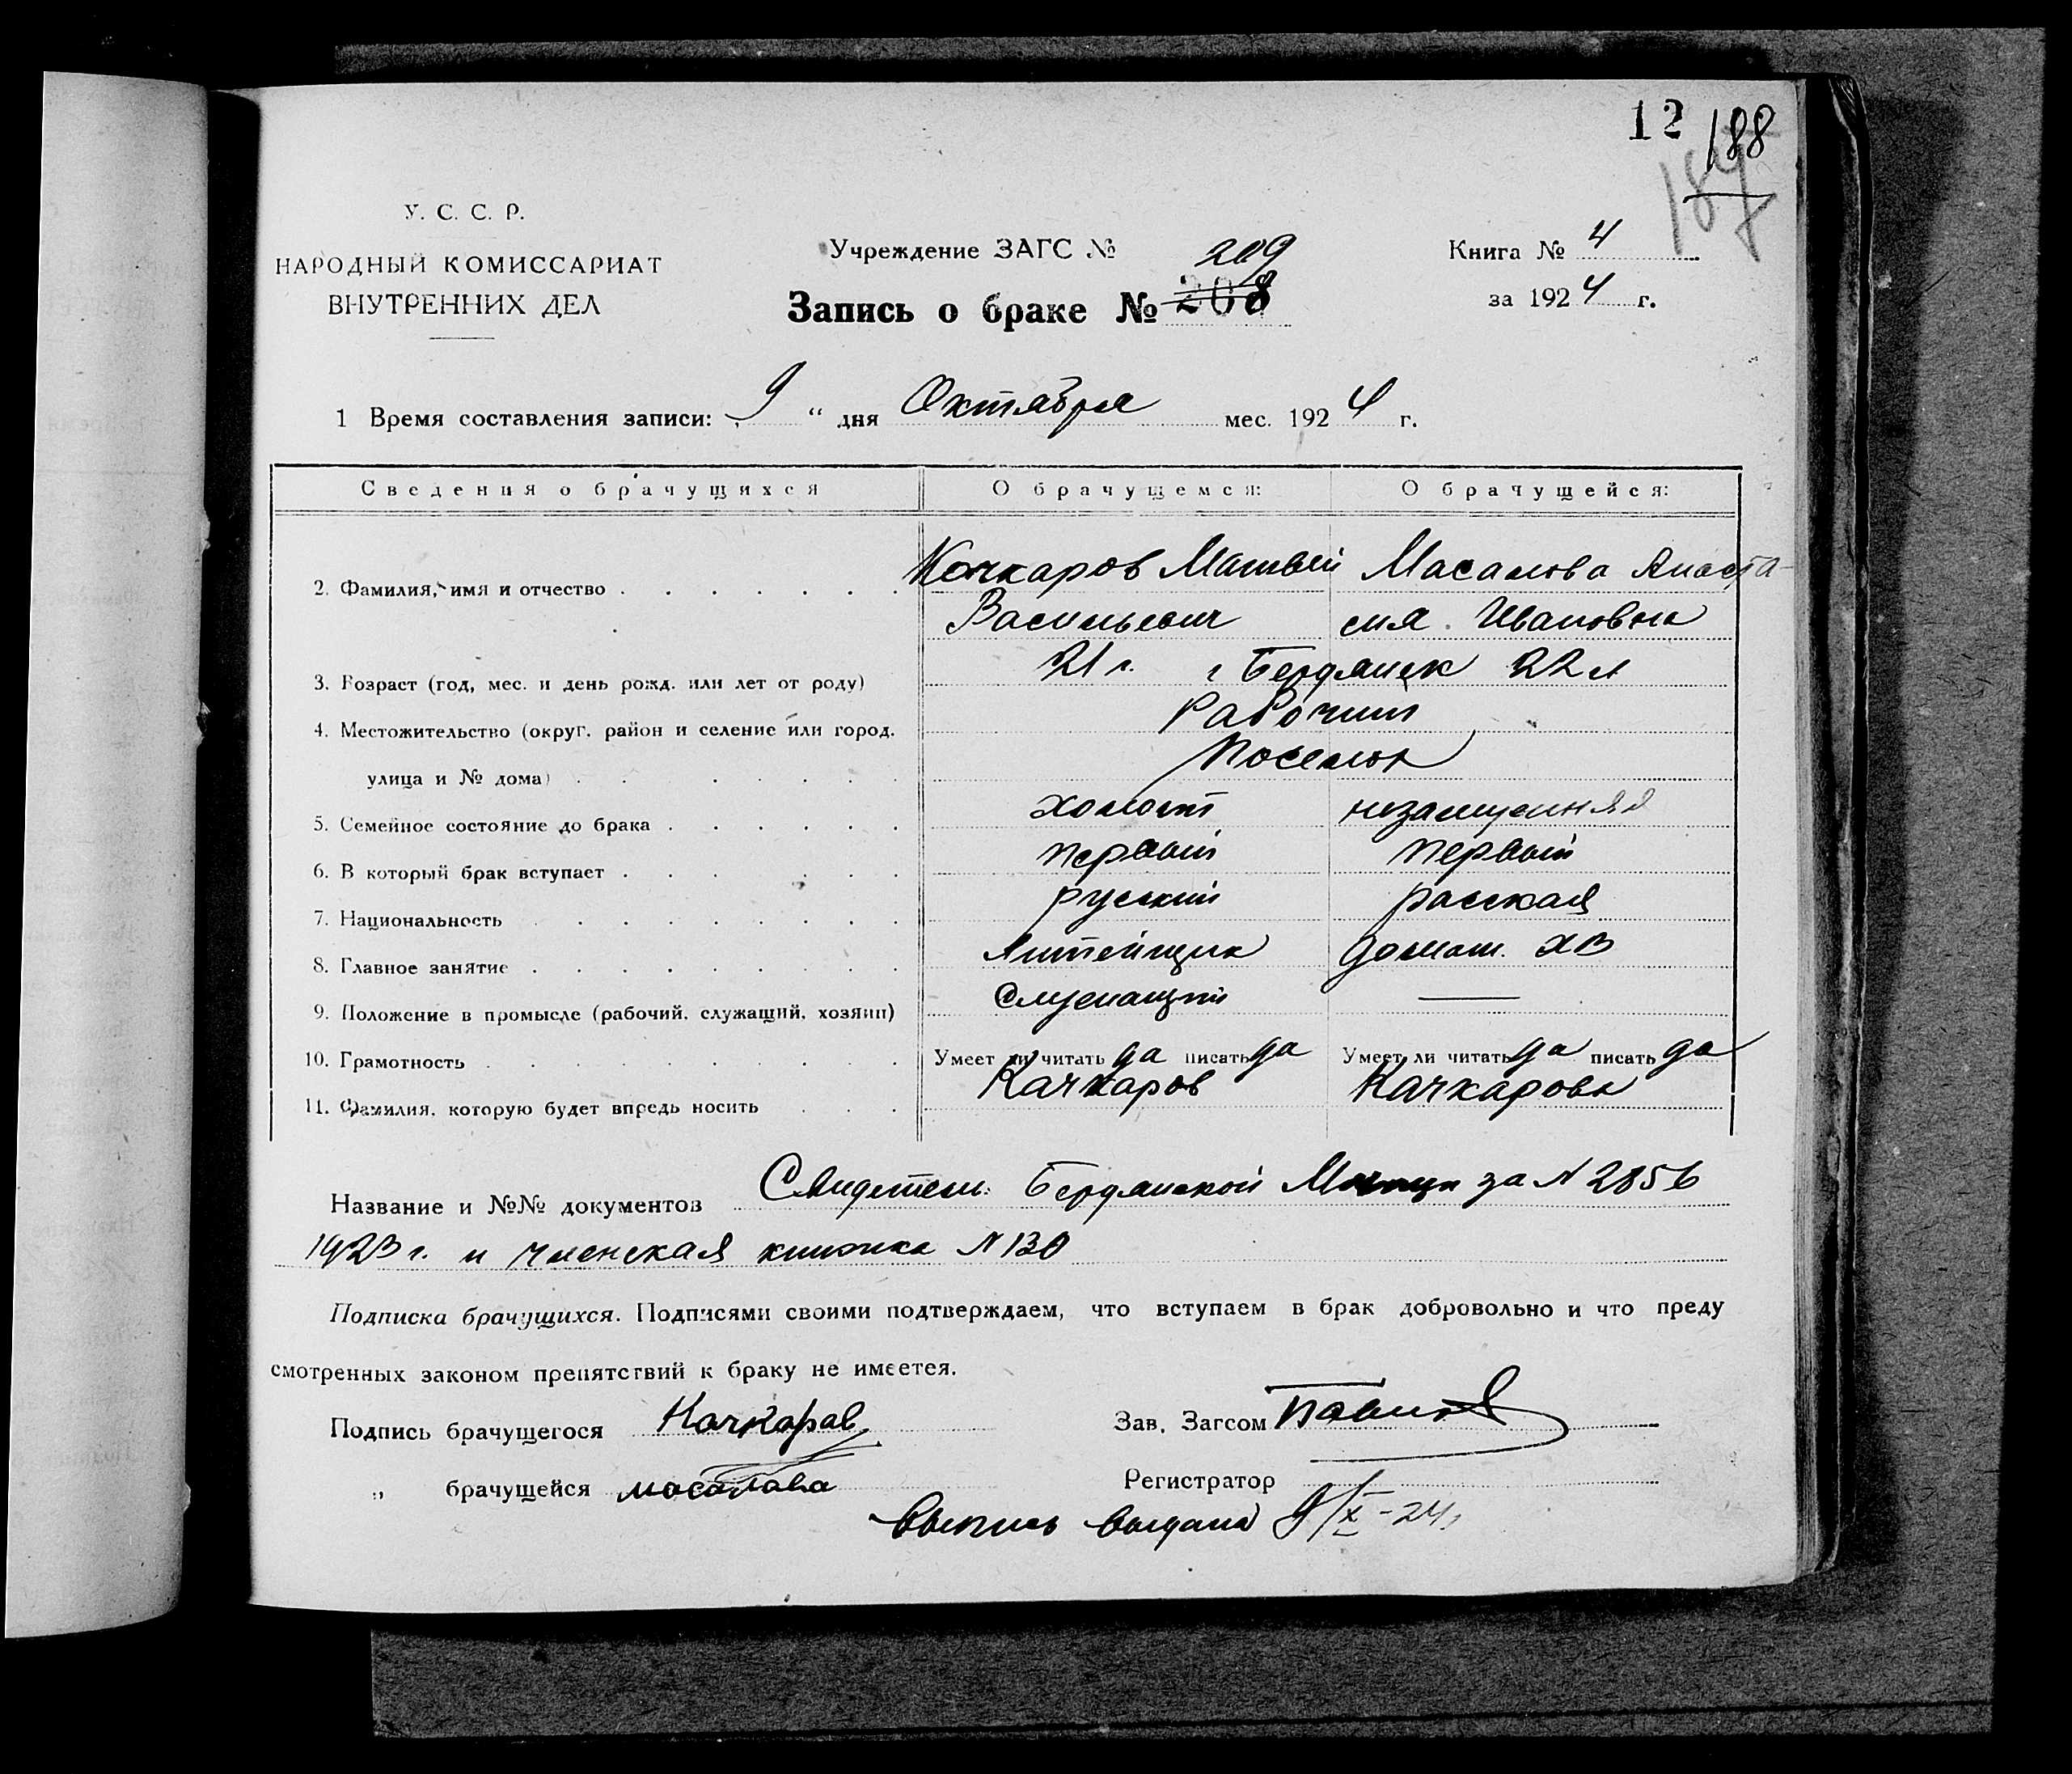 12 188
187
У. С. С. Р.
НАРОДНЫЙ КОМИССАРИАТ
ВНУТРЕННИХ ДЕЛ
Учреждение ЗАГС №
209
Запись о браке № 208
Книга № 4
за 1924 г.
1 Время составления записи: 9 “ дня Октября мес. 1924 г.
Сведения о брачущихся О брачущемся: О брачущейся:
2. Фамилия, имя и отчество Качкаров Матвей Масалова Анаста-
Васильевич сия Ивановна
3. Возраст (год, мес. и день рожд. или лет от роду) 21 г. г Бердянск 22 л
4. Местожительство (округ, район и селение или город, Рабочий
улица и № дома) Поселок
5. Семейное состояние до брака холост незамужняя
6. В который брак вступает первый первый
7. Национальность русский русская
8. Главное занятие Литейщик домаш. хв
9. Положение в промысле (рабочий, служащий, хозяин) Служащий —
10. Грамотность Умеет ли читать да писать да Умеет ли читать да писать да
11. Фамилия, которую будет впредь носить Качкаров Качкарова
Название и №№ документов Свидетели: Бердянской за N 2856
1923 г. и членская книжка N 130
Подписка брачущихся. Подписями своими подтверждаем, что вступаем в брак добровольно и что преду
смотренных законом препятствий к браку не имеется.
Подпись брачущегося Качкаров Зав. Загсом
„ брачущейся Масалова Регистратор
Выпись выдана 9/X-24.